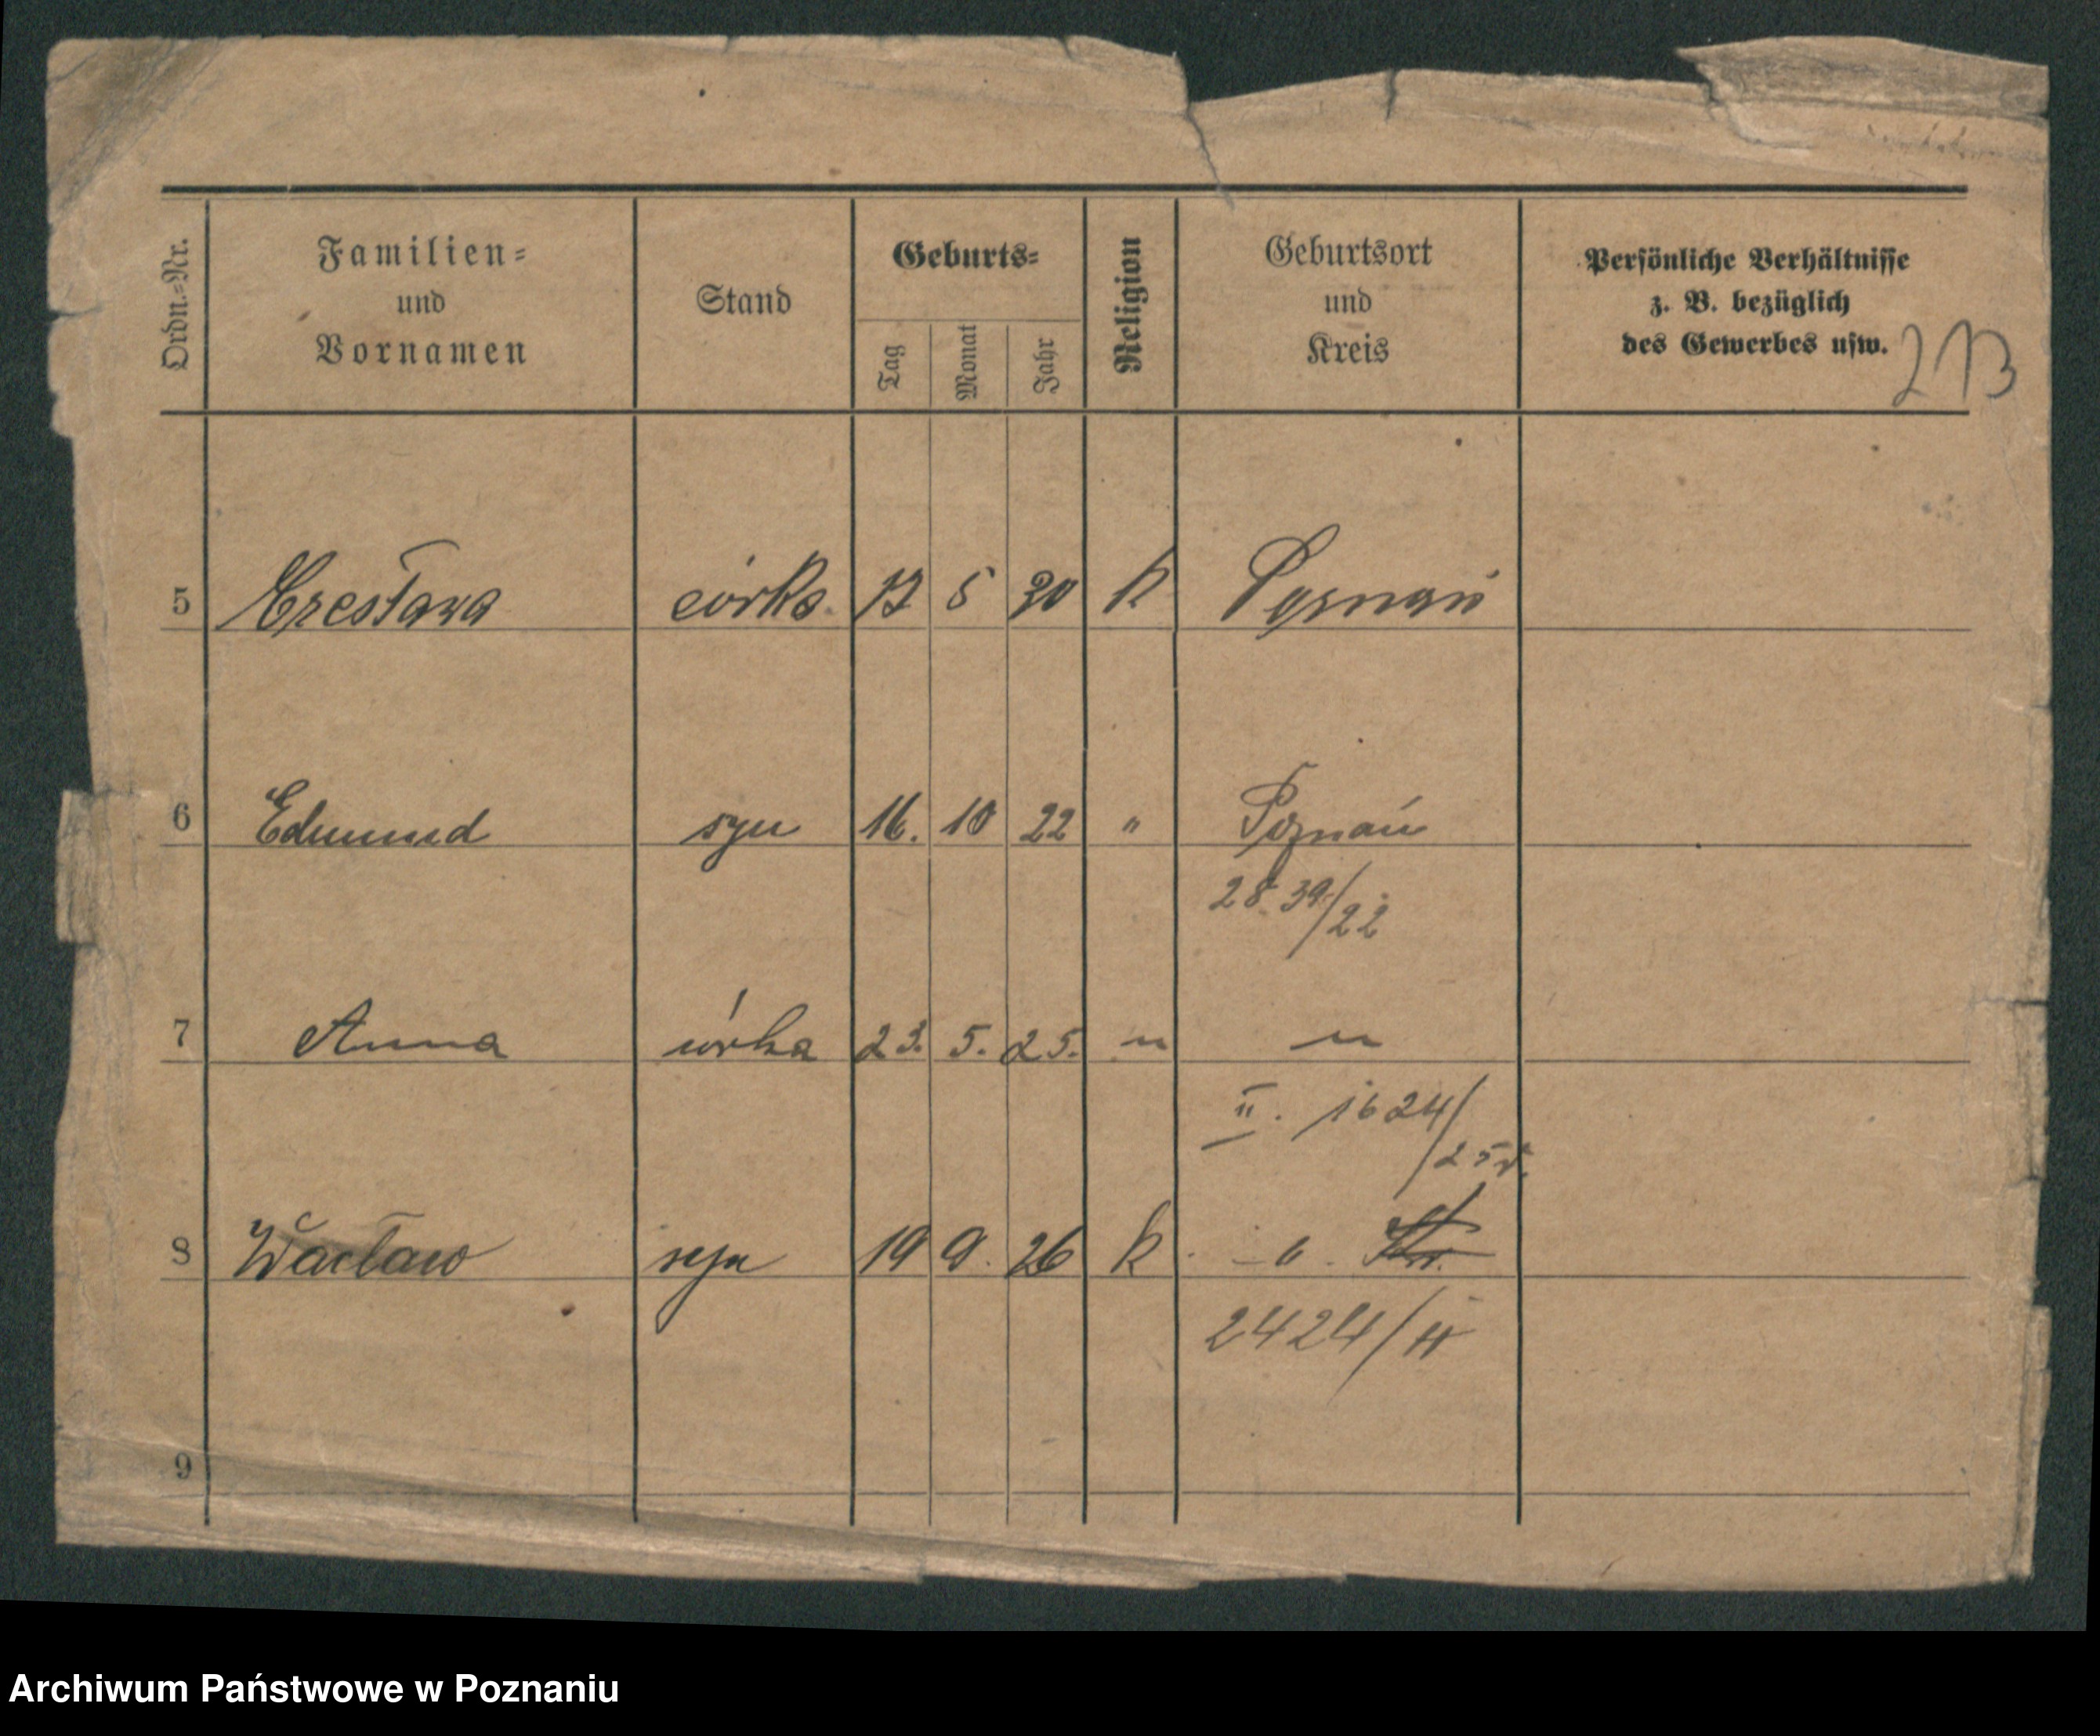 Ordn.-Nr.
Familien-
und
Vornamen
Stand
Geburts-
Tag
Monat
Jahr
Religion
Geburtsort
und
Kreis
Persönliche Verhältnisse
z. B. bezüglich
des Gewerbes usw.
5 Czesława córka 5 20 k Poznań
6 Edmund syn 16. 10 22 " Poznań
2839/22
7 Anna córka 23. 5. 25. " "
II. 1624/25
8 Wacław syn 19 9. 26 k. - " -
2424/II
9
Archiwum Państwowe w Poznaniu